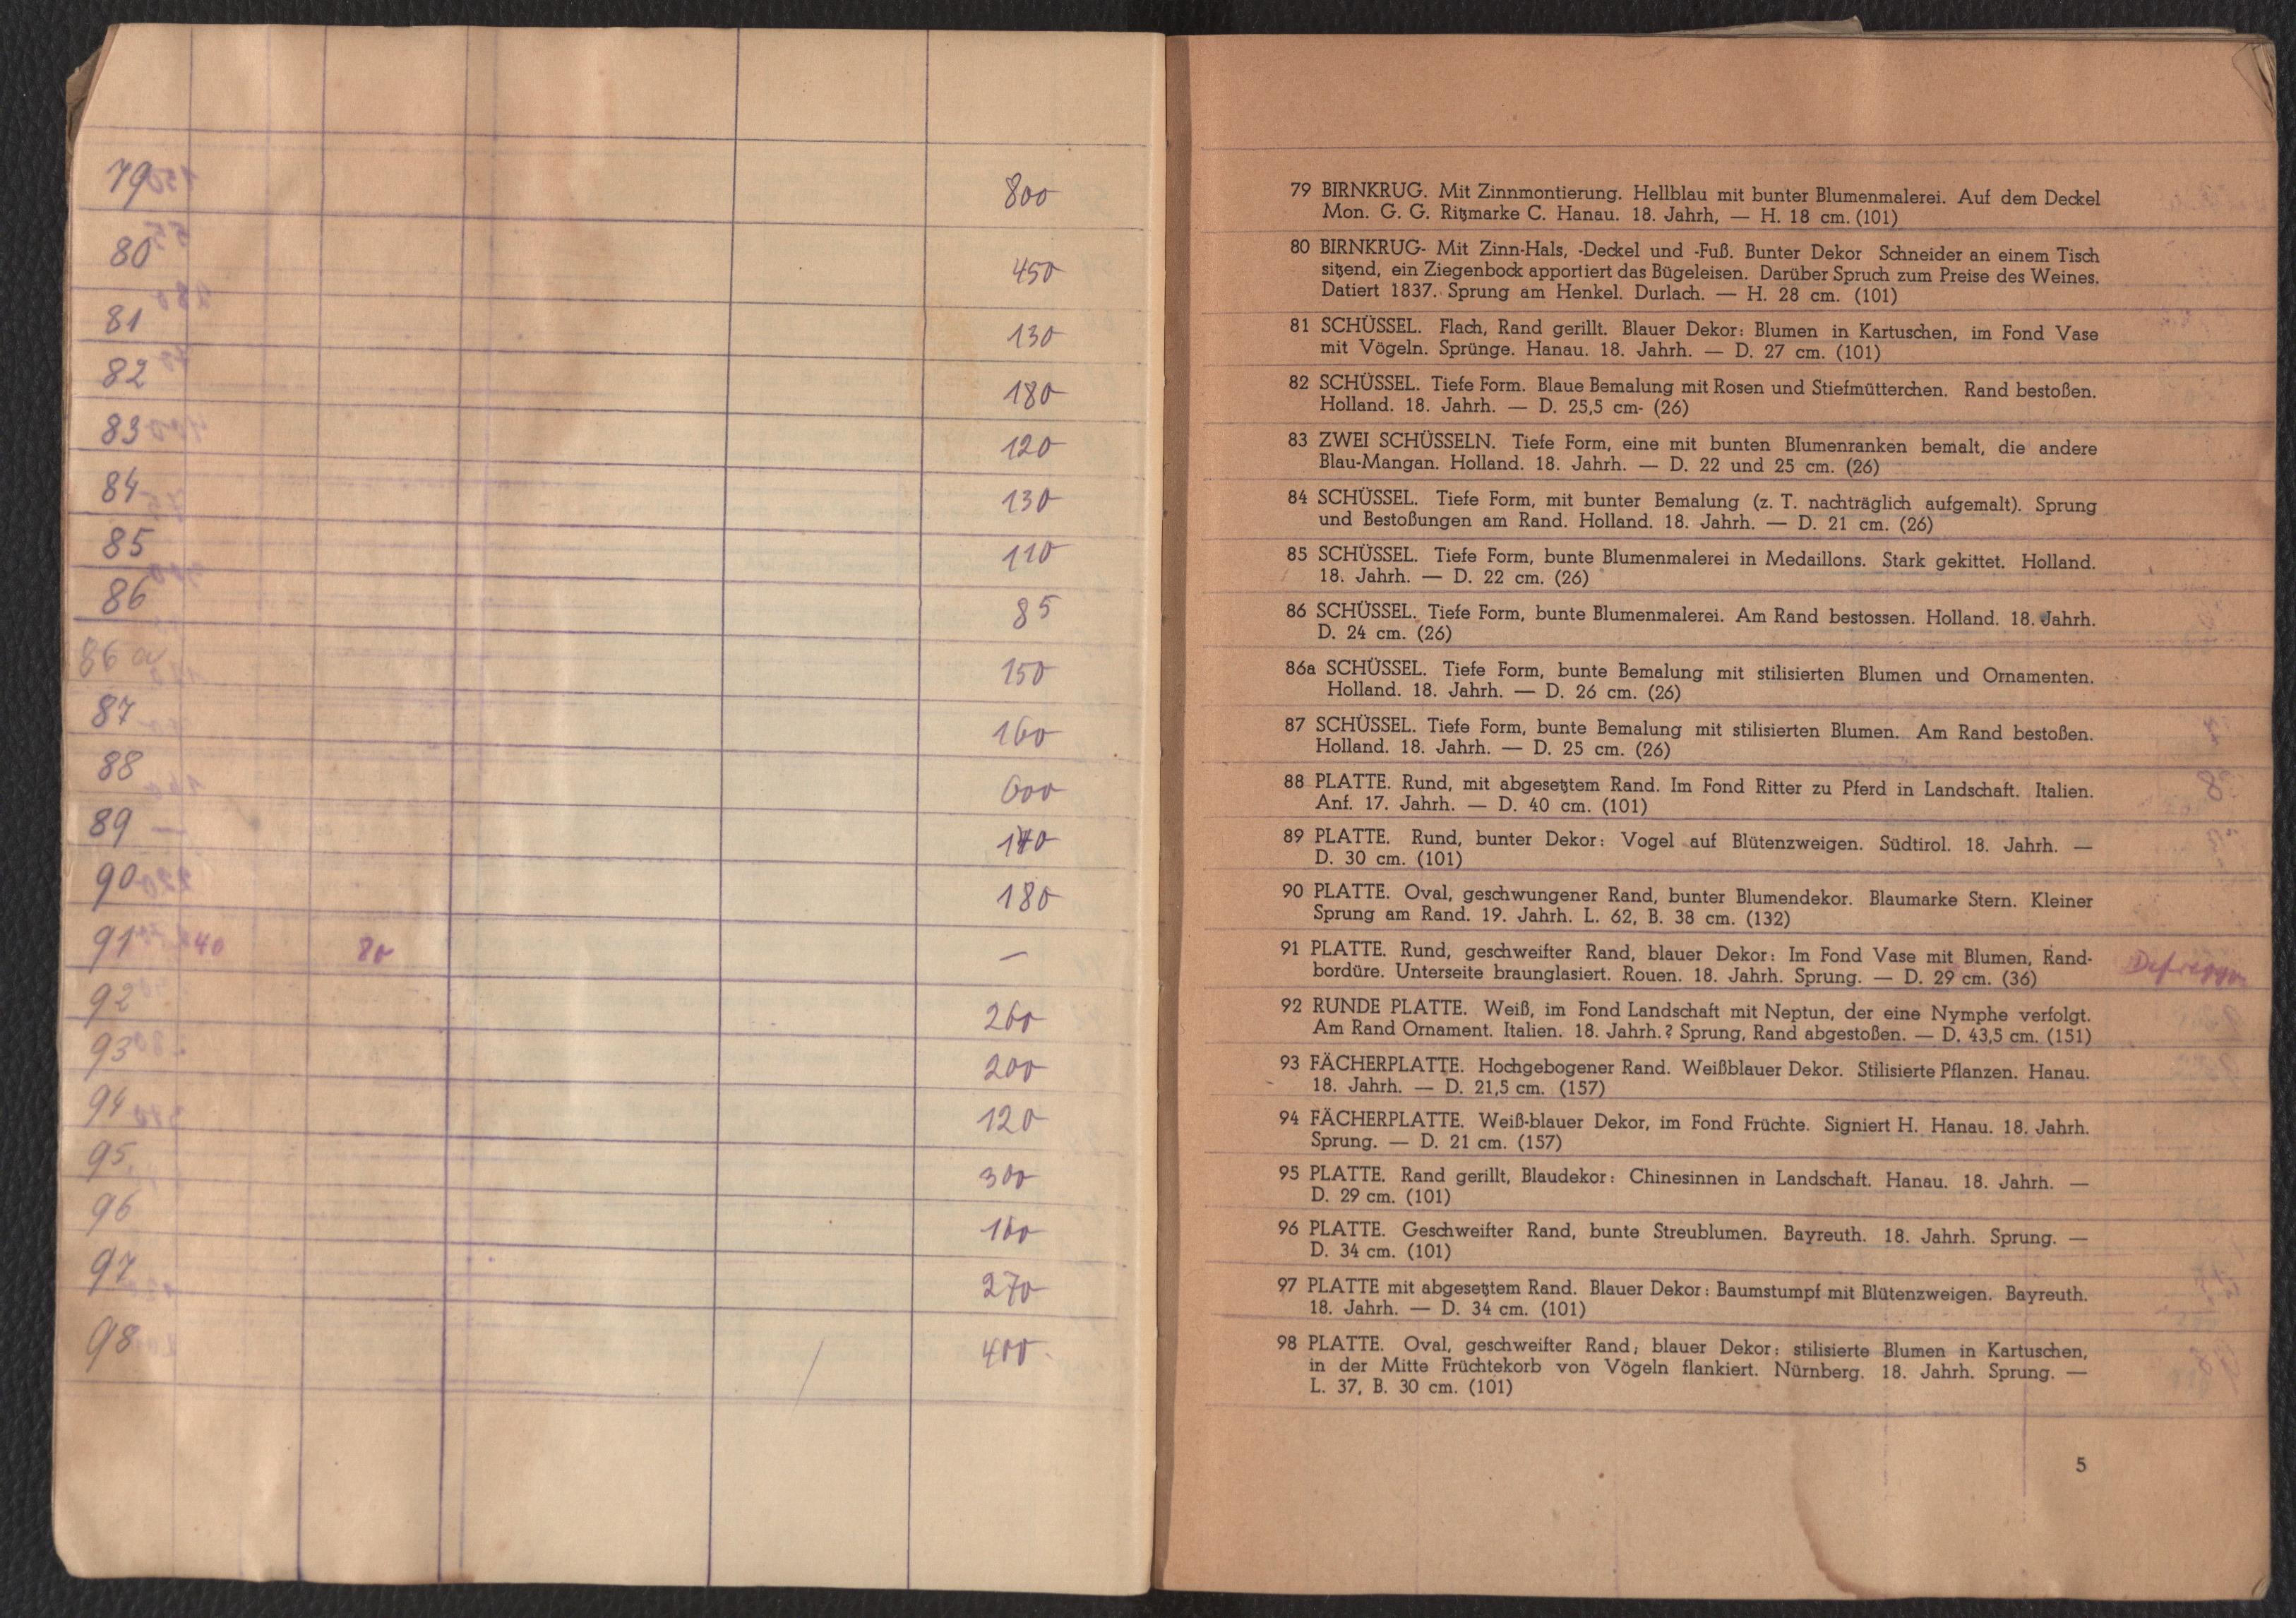 79 800
80 450
81 130
82 180
83 120
84 130
85 110
86 85
86a 150
87 160
88 600
89 — 140
90 180
91 40 80 —
92 260
93 200
94 120
95 300
96 160
97 270
98 400
79 BIRNKRUG. Mit Zinnmontierung. Hellblau mit bunter Blumenmalerei. Auf dem Deckel
Mon. G. G. Ritzmarke C. Hanau. 18. Jahrh, — H. 18 cm. (101)
80 BIRNKRUG- Mit Zinn-Hals, -Deckel und -Fuß. Bunter Dekor Schneider an einem Tisch
sitzend, ein Ziegenbock apportiert das Bügeleisen. Darüber Spruch zum Preise des Weines.
Datiert 1837. Sprung am Henkel. Durlach. — H. 28 cm. (101)
81 SCHÜSSEL. Flach, Rand gerillt. Blauer Dekor: Blumen in Kartuschen, im Fond Vase
mit Vögeln. Sprünge. Hanau. 18. Jahrh. — D. 27 cm. (101)
82 SCHÜSSEL. Tiefe Form. Blaue Bemalung mit Rosen und Stiefmütterchen. Rand bestoßen.
Holland. 18. Jahrh. — D. 25,5 cm- (26)
83 ZWEI SCHÜSSELN. Tiefe Form, eine mit bunten Blumenranken bemalt, die andere
Blau-Mangan. Holland. 18. Jahrh. — D. 22 und 25 cm. (26)
84 SCHÜSSEL. Tiefe Form, mit bunter Bemalung (z. T. nachträglich aufgemalt). Sprung
und Bestoßungen am Rand. Holland. 18. Jahrh. — D. 21 cm. (26)
85 SCHÜSSEL. Tiefe Form, bunte Blumenmalerei in Medaillons. Stark gekittet. Holland.
18. Jahrh. — D. 22 cm. (26)
86 SCHÜSSEL. Tiefe Form, bunte Blumenmalerei. Am Rand bestossen. Holland. 18. Jahrh.
D. 24 cm. (26)
86a SCHÜSSEL. Tiefe Form, bunte Bemalung mit stilisierten Blumen und Ornamenten.
Holland. 18. Jahrh. — D. 26 cm. (26)
87 SCHÜSSEL. Tiefe Form, bunte Bemalung mit stilisierten Blumen. Am Rand bestoßen.
Holland. 18. Jahrh. — D. 25 cm. (26)
88 PLATTE. Rund, mit abgesetztem Rand. Im Fond Ritter zu Pferd in Landschaft. Italien.
Anf. 17. Jahrh. — D. 40 cm. (101)
89 PLATTE. Rund, bunter Dekor: Vogel auf Blütenzweigen. Südtirol. 18. Jahrh. —
D. 30 cm. (101)
90 PLATTE. Oval, geschwungener Rand, bunter Blumendekor. Blaumarke Stern. Kleiner
Sprung am Rand. 19. Jahrh. L. 62, B. 38 cm. (132)
91 PLATTE. Rund, geschweifter Rand, blauer Dekor: Im Fond Vase mit Blumen, Rand-
bordüre. Unterseite braunglasiert. Rouen. 18. Jahrh. Sprung. — D. 29 cm. (36)
92 RUNDE PLATTE. Weiß, im Fond Landschaft mit Neptun, der eine Nymphe verfolgt.
Am Rand Ornament. Italien. 18. Jahrh.? Sprung, Rand abgestoßen. — D. 43,5 cm. (151)
93 FÄCHERPLATTE. Hochgebogener Rand. Weißblauer Dekor. Stilisierte Pflanzen. Hanau.
18. Jahrh. — D. 21,5 cm. (157)
94 FÄCHERPLATTE. Weiß-blauer Dekor, im Fond Früchte. Signiert H. Hanau. 18. Jahrh.
Sprung. — D. 21 cm. (157)
95 PLATTE. Rand gerillt, Blaudekor: Chinesinnen in Landschaft. Hanau. 18. Jahrh. —
D. 29 cm. (101)
96 PLATTE. Geschweifter Rand, bunte Streublumen. Bayreuth. 18. Jahrh. Sprung. —
D. 34 cm. (101)
97 PLATTE mit abgesetztem Rand. Blauer Dekor: Baumstumpf mit Blütenzweigen. Bayreuth.
18. Jahrh. — D. 34 cm. (101)
98 PLATTE. Oval, geschweifter Rand; blauer Dekor: stilisierte Blumen in Kartuschen,
in der Mitte Früchtekorb von Vögeln flankiert. Nürnberg. 18. Jahrh. Sprung. —
L. 37, B. 30 cm. (101)
5